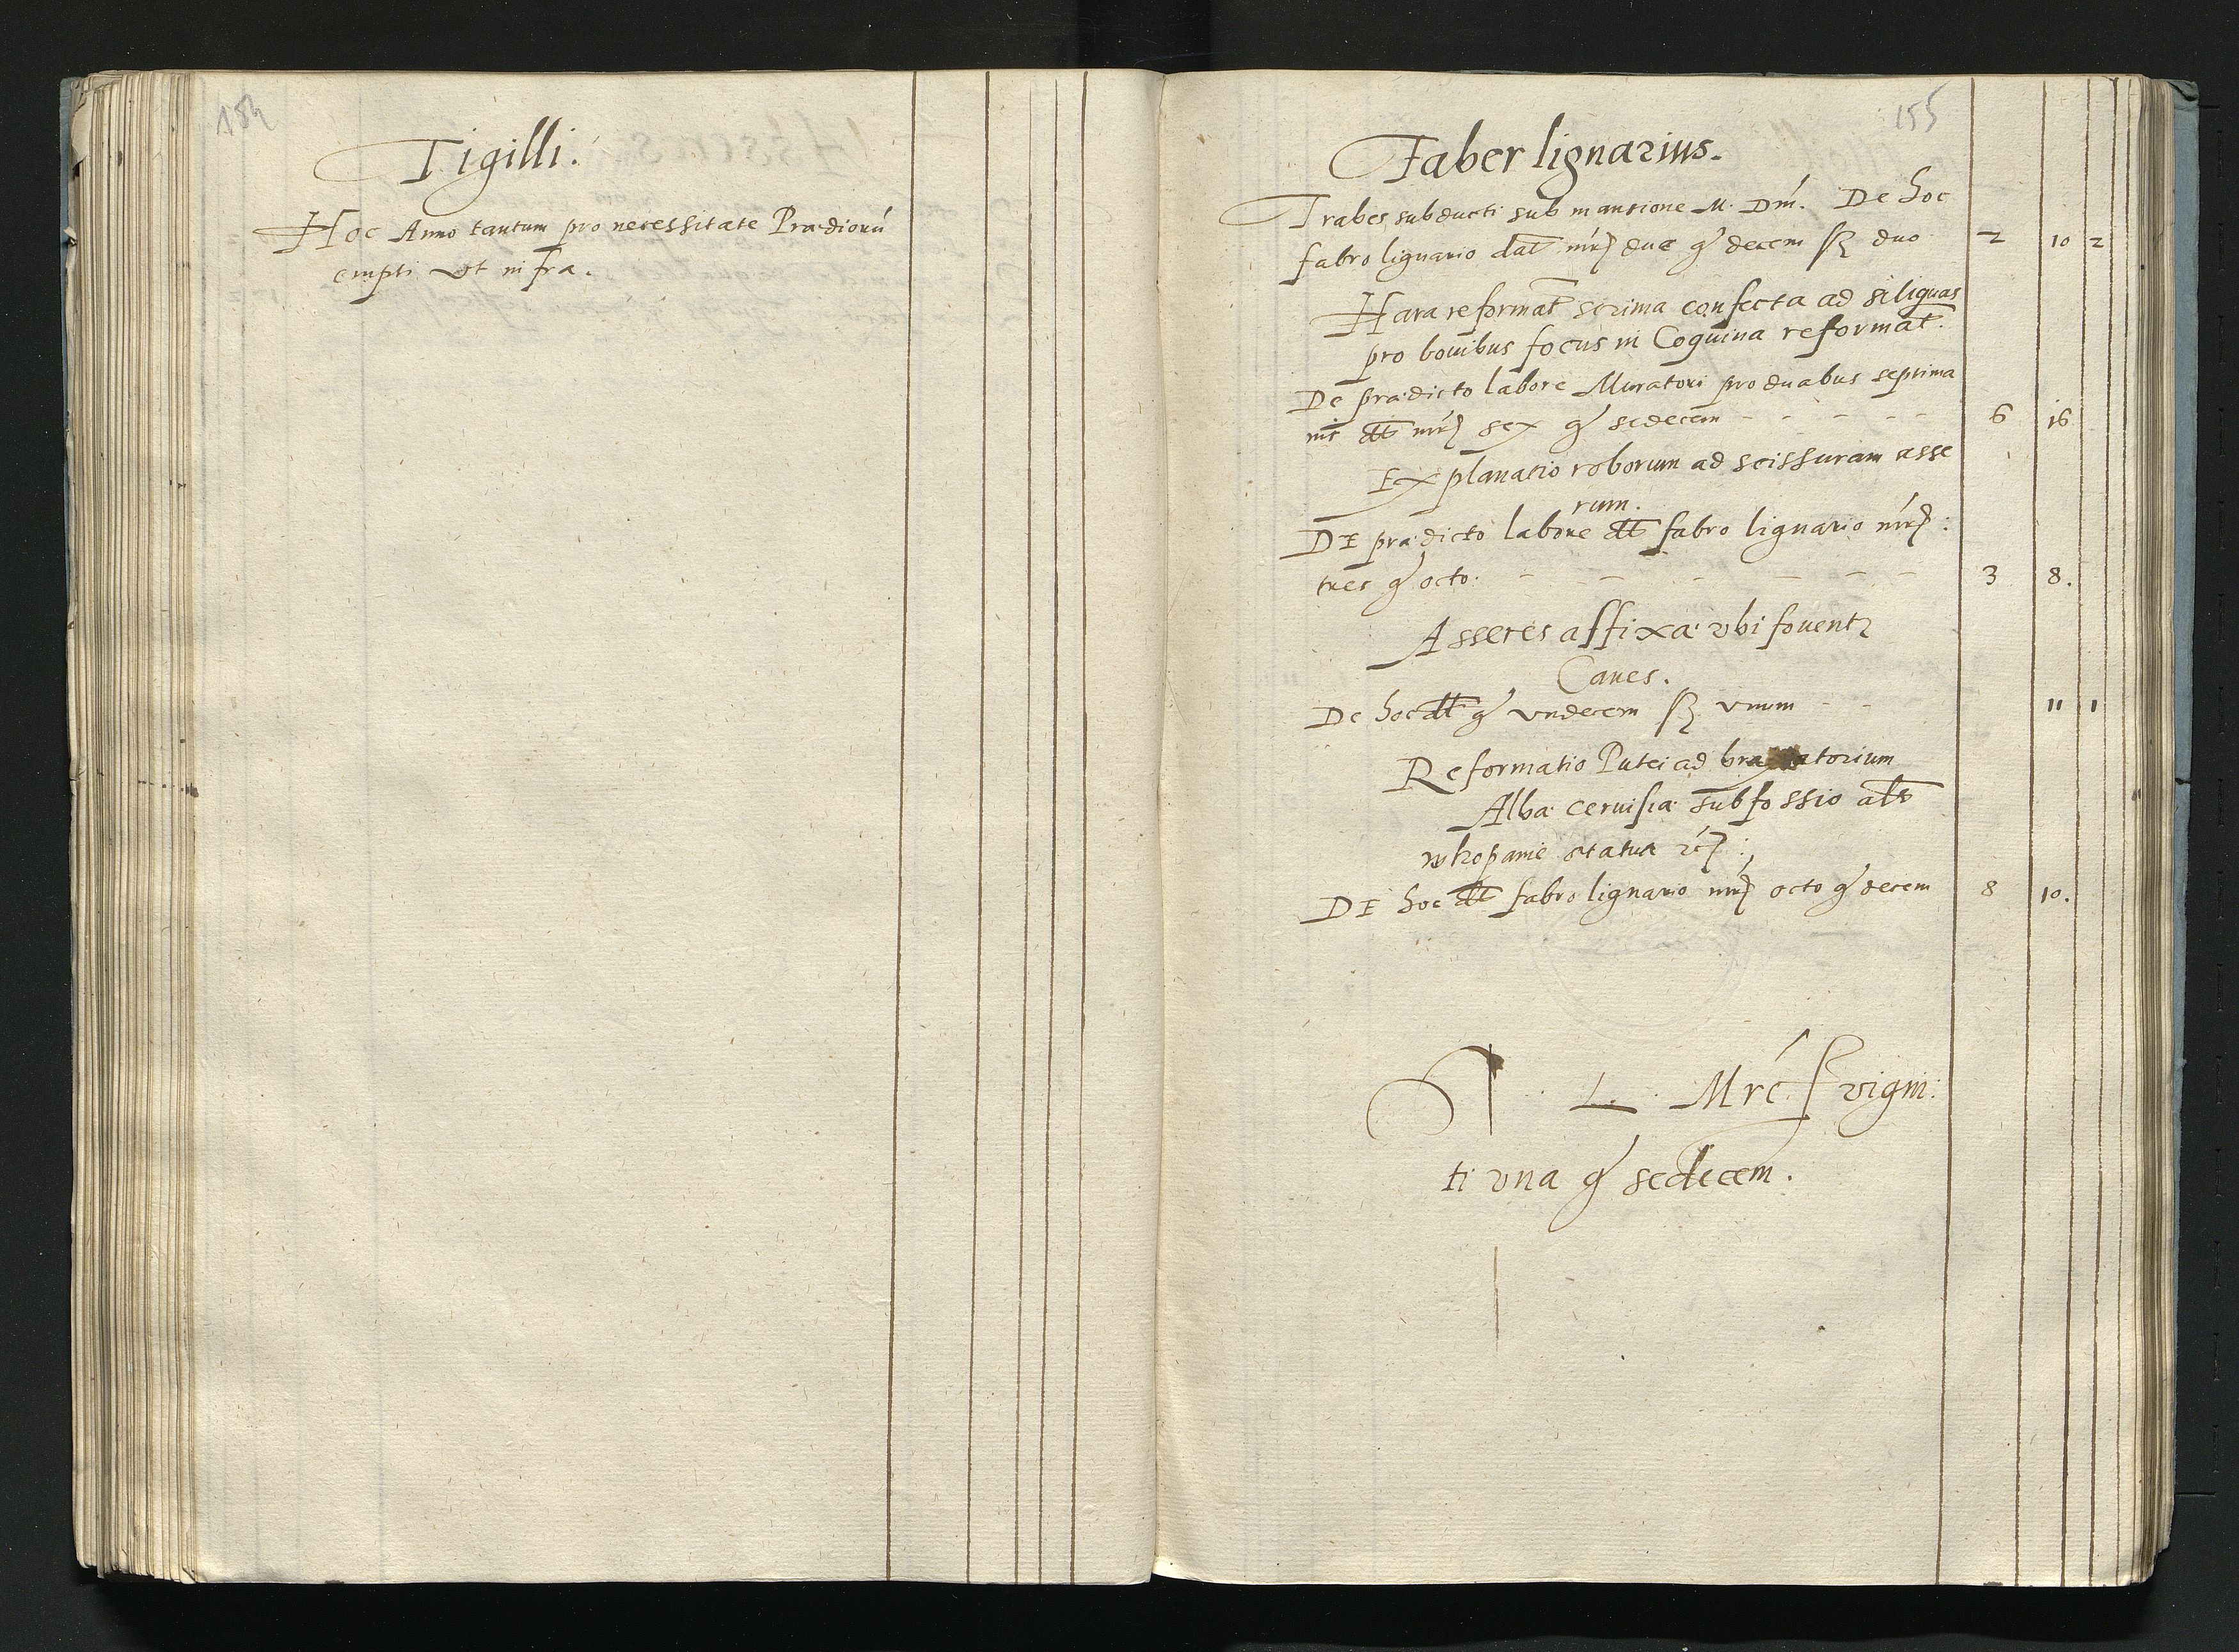 154
Tigilli.
Hoc Anno tantum pro necessitate Prædiorū
empti vt infra.
155
Faber lignarius.
Trabes subducti sub mansione M. Dnī. De hoc
fabro lignario dat̄ mr̄ duæ g decem ß duo 2 10 2
Hara reformat̄ scrima confecta ad siliquas
pro bouibus focus in Coquina reformat̄.
De prædicto labore Muratori pro duabus septima
nis dt̄ mr̄ sex g sedecem - - - - - 6 16
Explanatio roborum ad scissuram asse
rum.
DE prædicto labore dt̄ fabro lignario mr̄:
tres g octo. - - - - - - 3 8.
Asseres affixæ vbi fouentr
Canes.
De hoc dt̄ g vndecem ß vnum - - 11 1
Reformatio Putei ad torium
Albæ ceruisiæ subfossio
wkopanie
DE hoc dt̄ fabro lignario mr̄ octo g decem 8 10.
L. Mrc. vigin:
ti vna g sedecem.